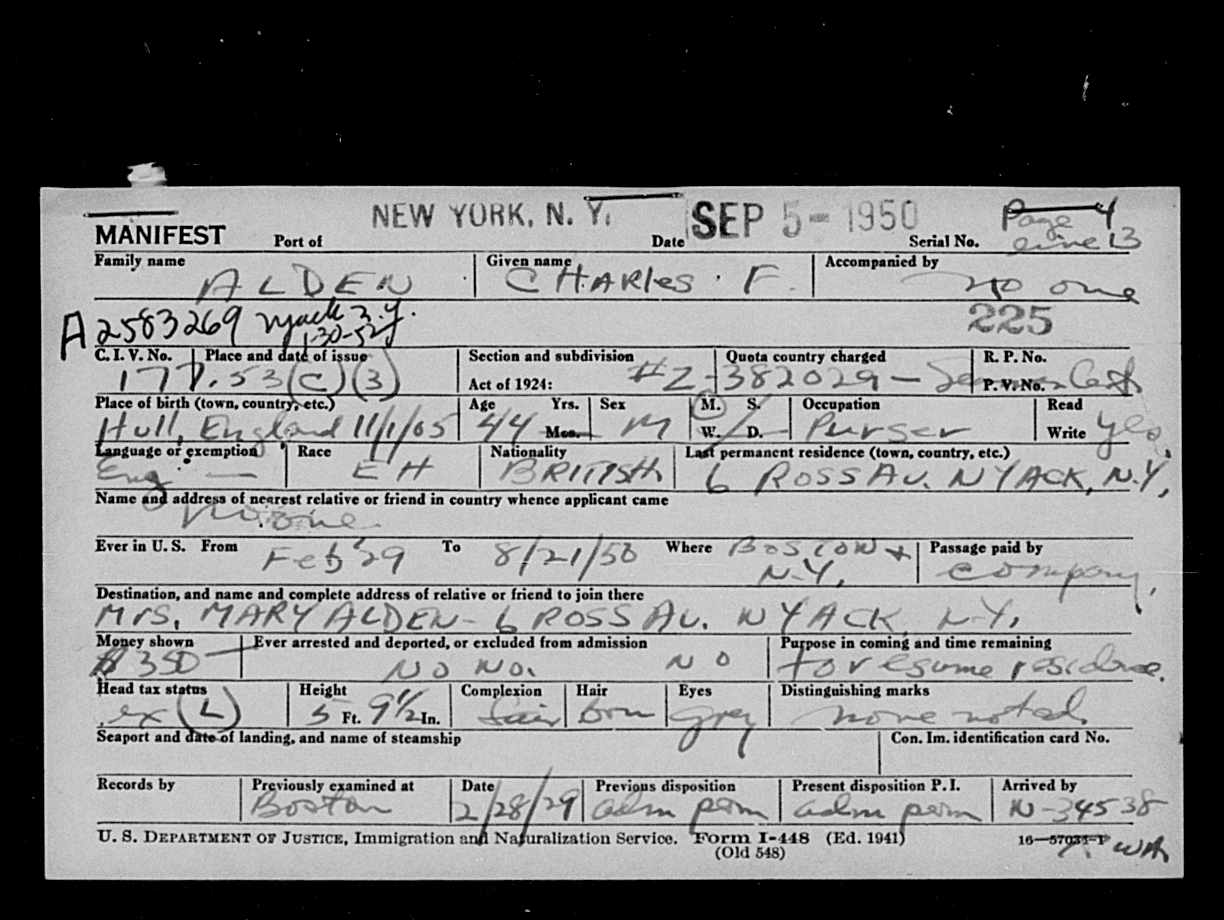 NEW YORK, N. Y. SEP 5 - 1950 Page 4
MANIFEST Port of Date Serial No. Line 13
Family name Given name Accompanied by
ALDEN CHARles F. no one
A2583269 Nyack N.Y. 225
1-30-52
C. I. V. No. Place and date of issue Section and subdivision Quota country charged R. P. No.
177.53(C)(3) Act of 1924: #Z-382029 - Seaman Cert P. V. No.
Place of birth (town, country, etc.) Age Yrs. Sex M. S. Occupation Read
Hull, England 11/1/05 44 Mos. M W. D. Purser Write yes
Language or exemption Race Nationality Last permanent residence (town, country, etc.)
Eng. — EH BRITISH 6 ROSS AV. NYACK, N.Y.
Name and address of nearest relative or friend in country whence applicant came
No one
Ever in U. S. From Feb '29 To 8/21/50 Where BOSTON + Passage paid by
N.Y. company
Destination, and name and complete address of relative or friend to join there
Mrs. MARY ALDEN - 6 ROSS AV. NYACK N.Y.
Money shown Ever arrested and deported, or excluded from admission Purpose in coming and time remaining
$350 NO NO. NO to resume residence.
Head tax status Height Complexion Hair Eyes Distinguishing marks
ex (L) 5 Ft. 9½ In. fair brn grey none noted
Seaport and date of landing, and name of steamship Con. Im. identification card No.
Records by Previously examined at Date Previous disposition Present disposition P. I. Arrived by
Boston 2/28/29 adm perm adm perm N-34538
U. S. DEPARTMENT OF JUSTICE, Immigration and Naturalization Service. Form I-448 (Ed. 1941) 16—57034-1
(Old 548)